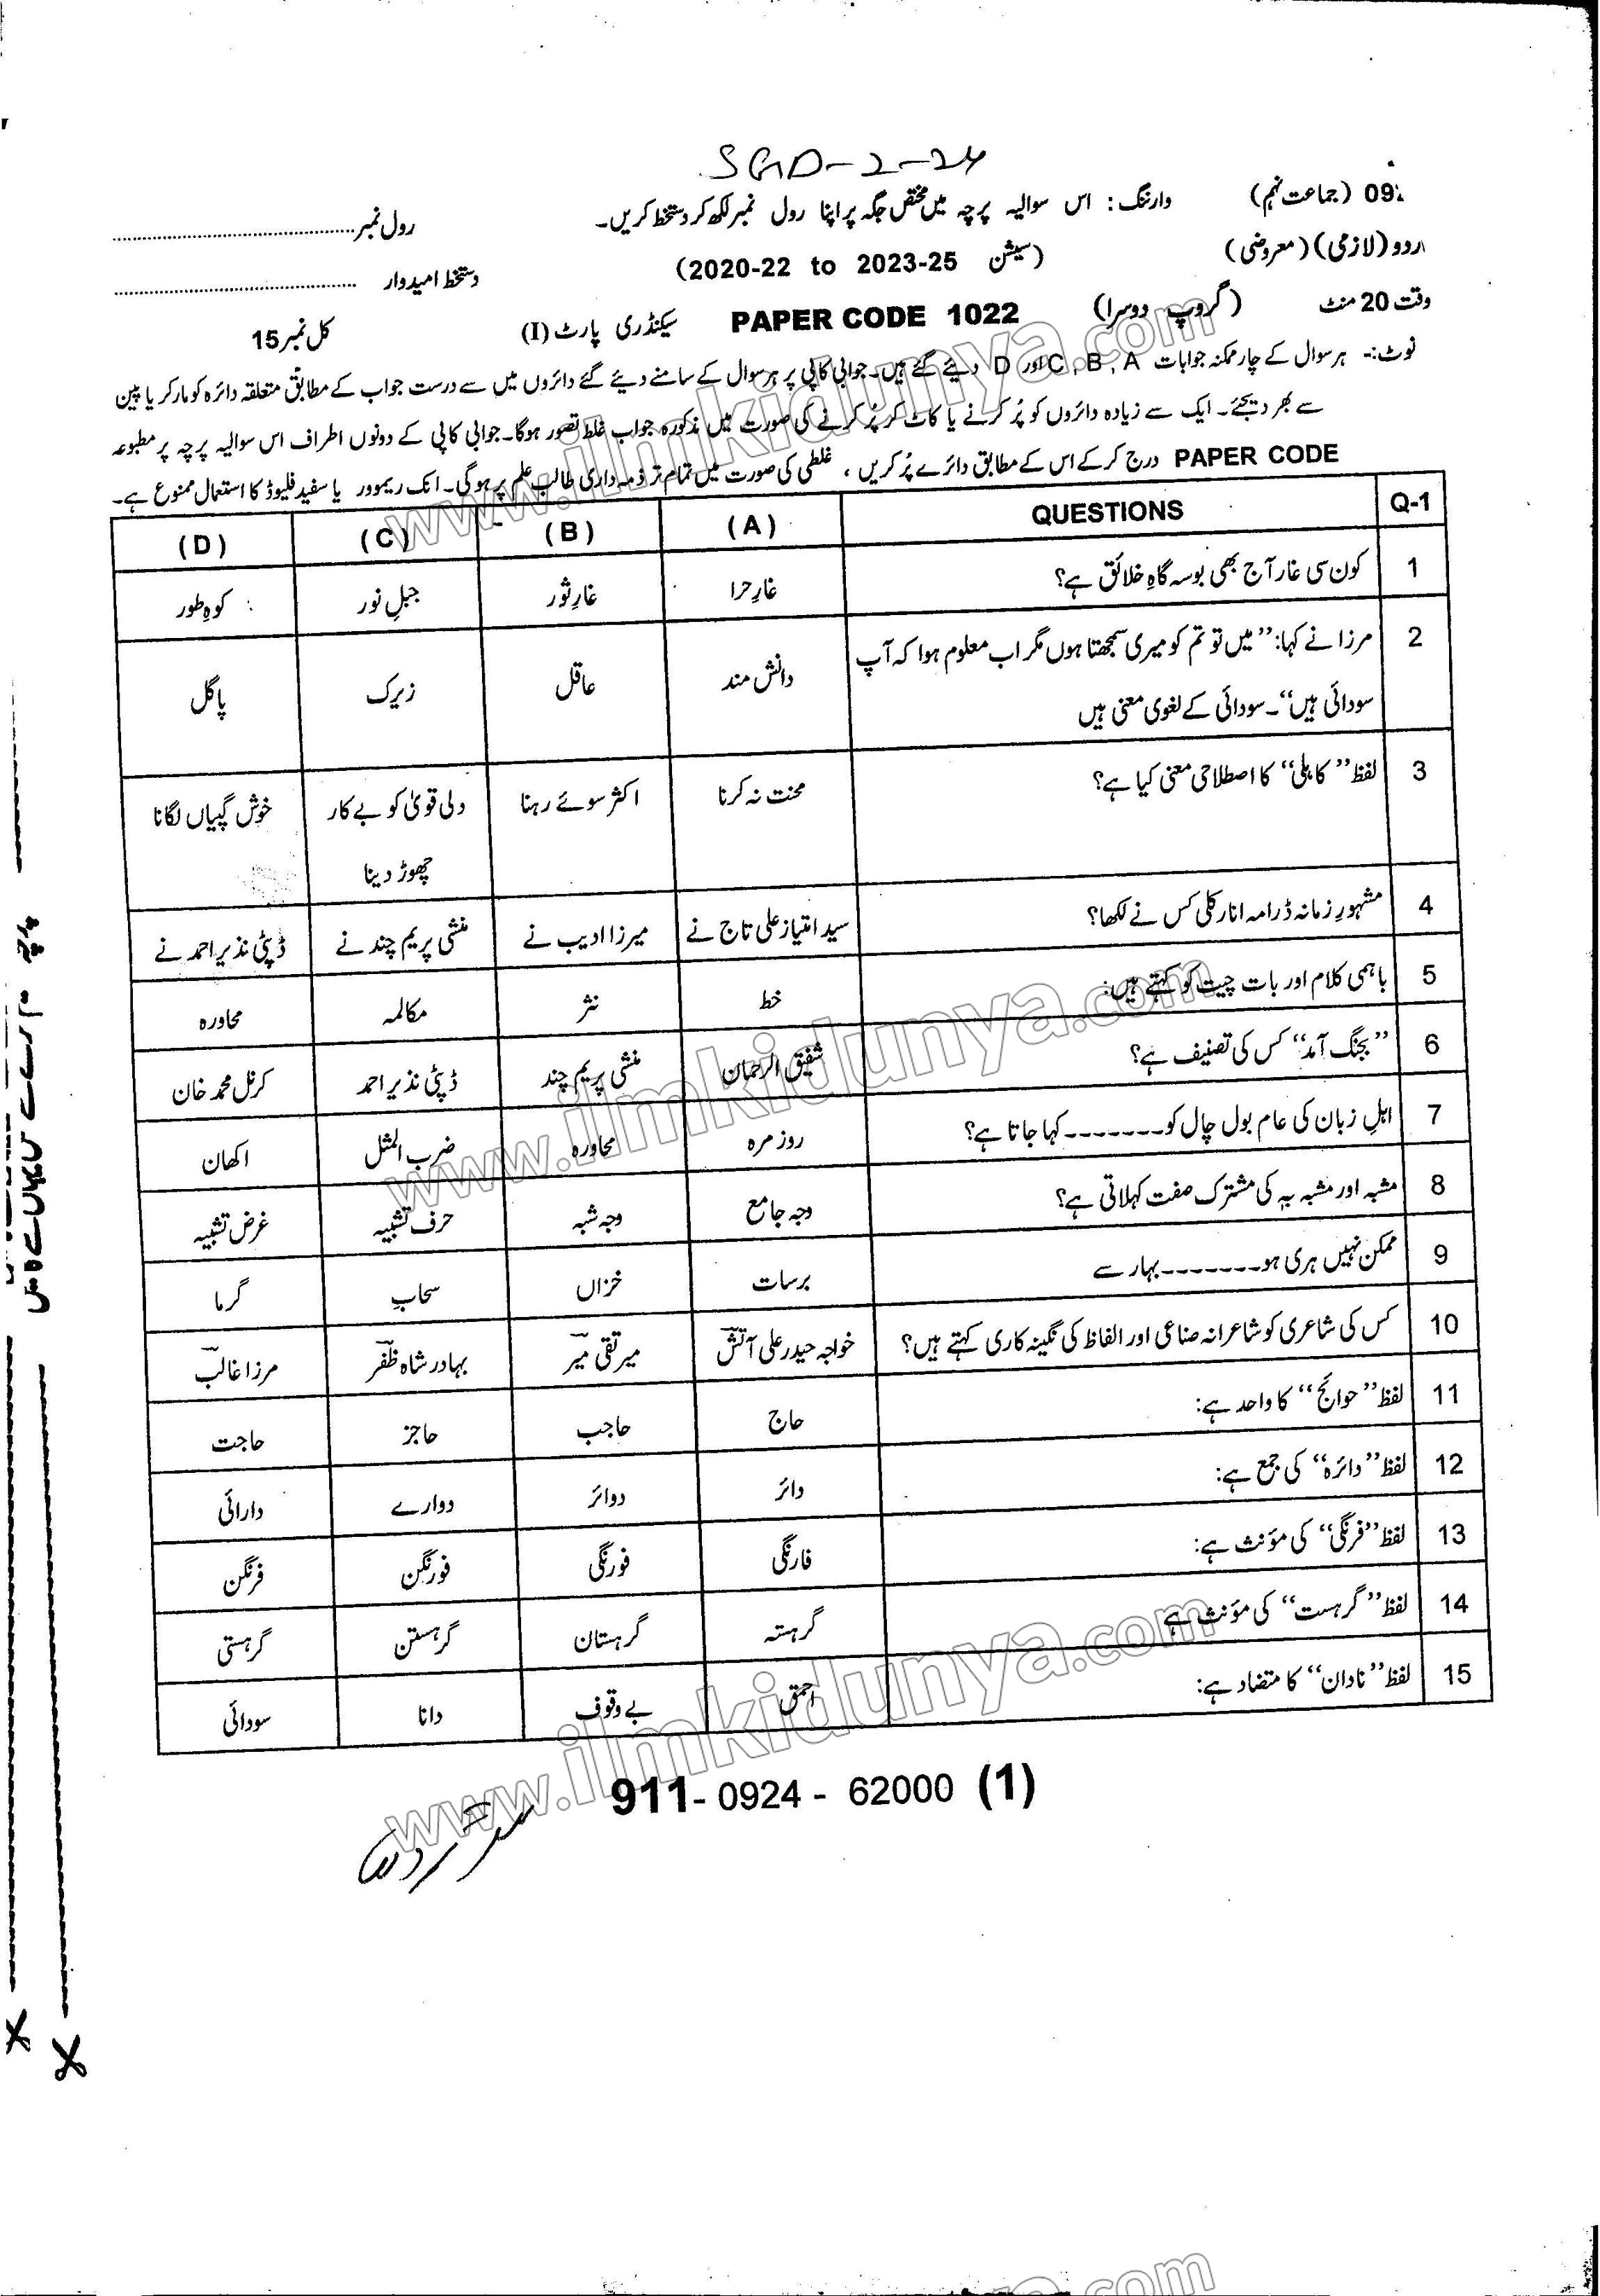 SGD-2-24
09 (جماعت نہم) وارننگ: اس سوالیہ پرچہ میں مختص جگہ پر اپنا رول نمبر لکھ کر دستخط کریں۔ رول نمبر
اردو (لازمی) (معروضی) (سیشن 2020-22 to 2023-25) دستخط امیدوار
وقت 20 منٹ (گروپ دوسرا) PAPER CODE 1022 سیکنڈری پارٹ (I) کل نمبر 15
نوٹ:۔ ہر سوال کے چار ممکنہ جوابات A ,B ,C اور D دیئے گئے ہیں۔ جوابی کاپی پر ہر سوال کے سامنے دیئے گئے دائروں میں سے درست جواب کے مطابق متعلقہ دائرہ کو مارکر یا پین
سے بھر دیجئے۔ ایک سے زیادہ دائروں کو پُر کرنے یا کاٹ کر پُر کرنے کی صورت میں مذکورہ جواب غلط تصور ہوگا۔ جوابی کاپی کے دونوں اطراف اس سوالیہ پرچہ پر مطبوعہ
PAPER CODE درج کر کے اس کے مطابق دائرے پُر کریں ، غلطی کی صورت میں تمام تر ذمہ داری طالب علم پر ہوگی۔ انک ریموور یا سفید فلیوڈ کا استعمال ممنوع ہے۔
Q-1 QUESTIONS (A) (B) (C) (D)
1 کون سی غار آج بھی بوسہ گاہِ خلائق ہے؟ غارِ حرا غارِ ثور جبلِ نور کوہِ طور
2 مرزا نے کہا: ’’میں تو تم کو میری سمجھتا ہوں مگر اب معلوم ہوا کہ آپ دانش مند عاقل زیرک پاگل
سودائی ہیں‘‘۔ سودائی کے لغوی معنی ہیں
3 لفظ ’’کاہلی‘‘ کا اصطلاحی معنی کیا ہے؟ محنت نہ کرنا اکثر سوئے رہنا دلی قویٰ کو بے کار خوش گپیاں لگانا
چھوڑ دینا
4 مشہورِ زمانہ ڈرامہ انار کلی کس نے لکھا؟ سید امتیاز علی تاج نے میرزا ادیب نے منشی پریم چند نے ڈپٹی نذیر احمد نے
5 باہمی کلام اور بات چیت کو کہتے ہیں: خط نثر مکالمہ محاورہ
6 ’’بجنگ آمد‘‘ کس کی تصنیف ہے؟ شفیق الرحمان منشی پریم چند ڈپٹی نذیر احمد کرنل محمد خان
7 اہلِ زبان کی عام بول چال کو ------- کہا جاتا ہے؟ روز مرہ محاورہ ضرب المثل اکھان
8 مشبہ اور مشبہ بہ کی مشترک صفت کہلاتی ہے؟ وجہ جامع وجہ شبہ حرف تشبیہ غرض تشبیہ
9 ممکن نہیں ہری ہو ------- بہار سے برسات خزاں سحابِ گرما
10 کس کی شاعری کو شاعرانہ صناعی اور الفاظ کی نگینہ کاری کہتے ہیں؟ خواجہ حیدر علی آتش میر تقی میر بہادر شاہ ظفر مرزا غالب
11 لفظ ’’حوائج‘‘ کا واحد ہے: حاج حاجب حاجز حاجت
12 لفظ ’’دائرہ‘‘ کی جمع ہے: دائر دوائر دوارے دارائی
13 لفظ ’’فرنگی‘‘ کی مؤنث ہے: فارنگی فورنگی فورنگن فرنگن
14 لفظ ’’گرہست‘‘ کی مؤنث ہے گرہستہ گرہستان گرہستن گرہستی
15 لفظ ’’نادان‘‘ کا متضاد ہے: احمق بے وقوف دانا سودائی
911-0924 - 62000 (1)
www.ilmkidunya.com
www.ilmkidunya.com
www.ilmkidunya.com